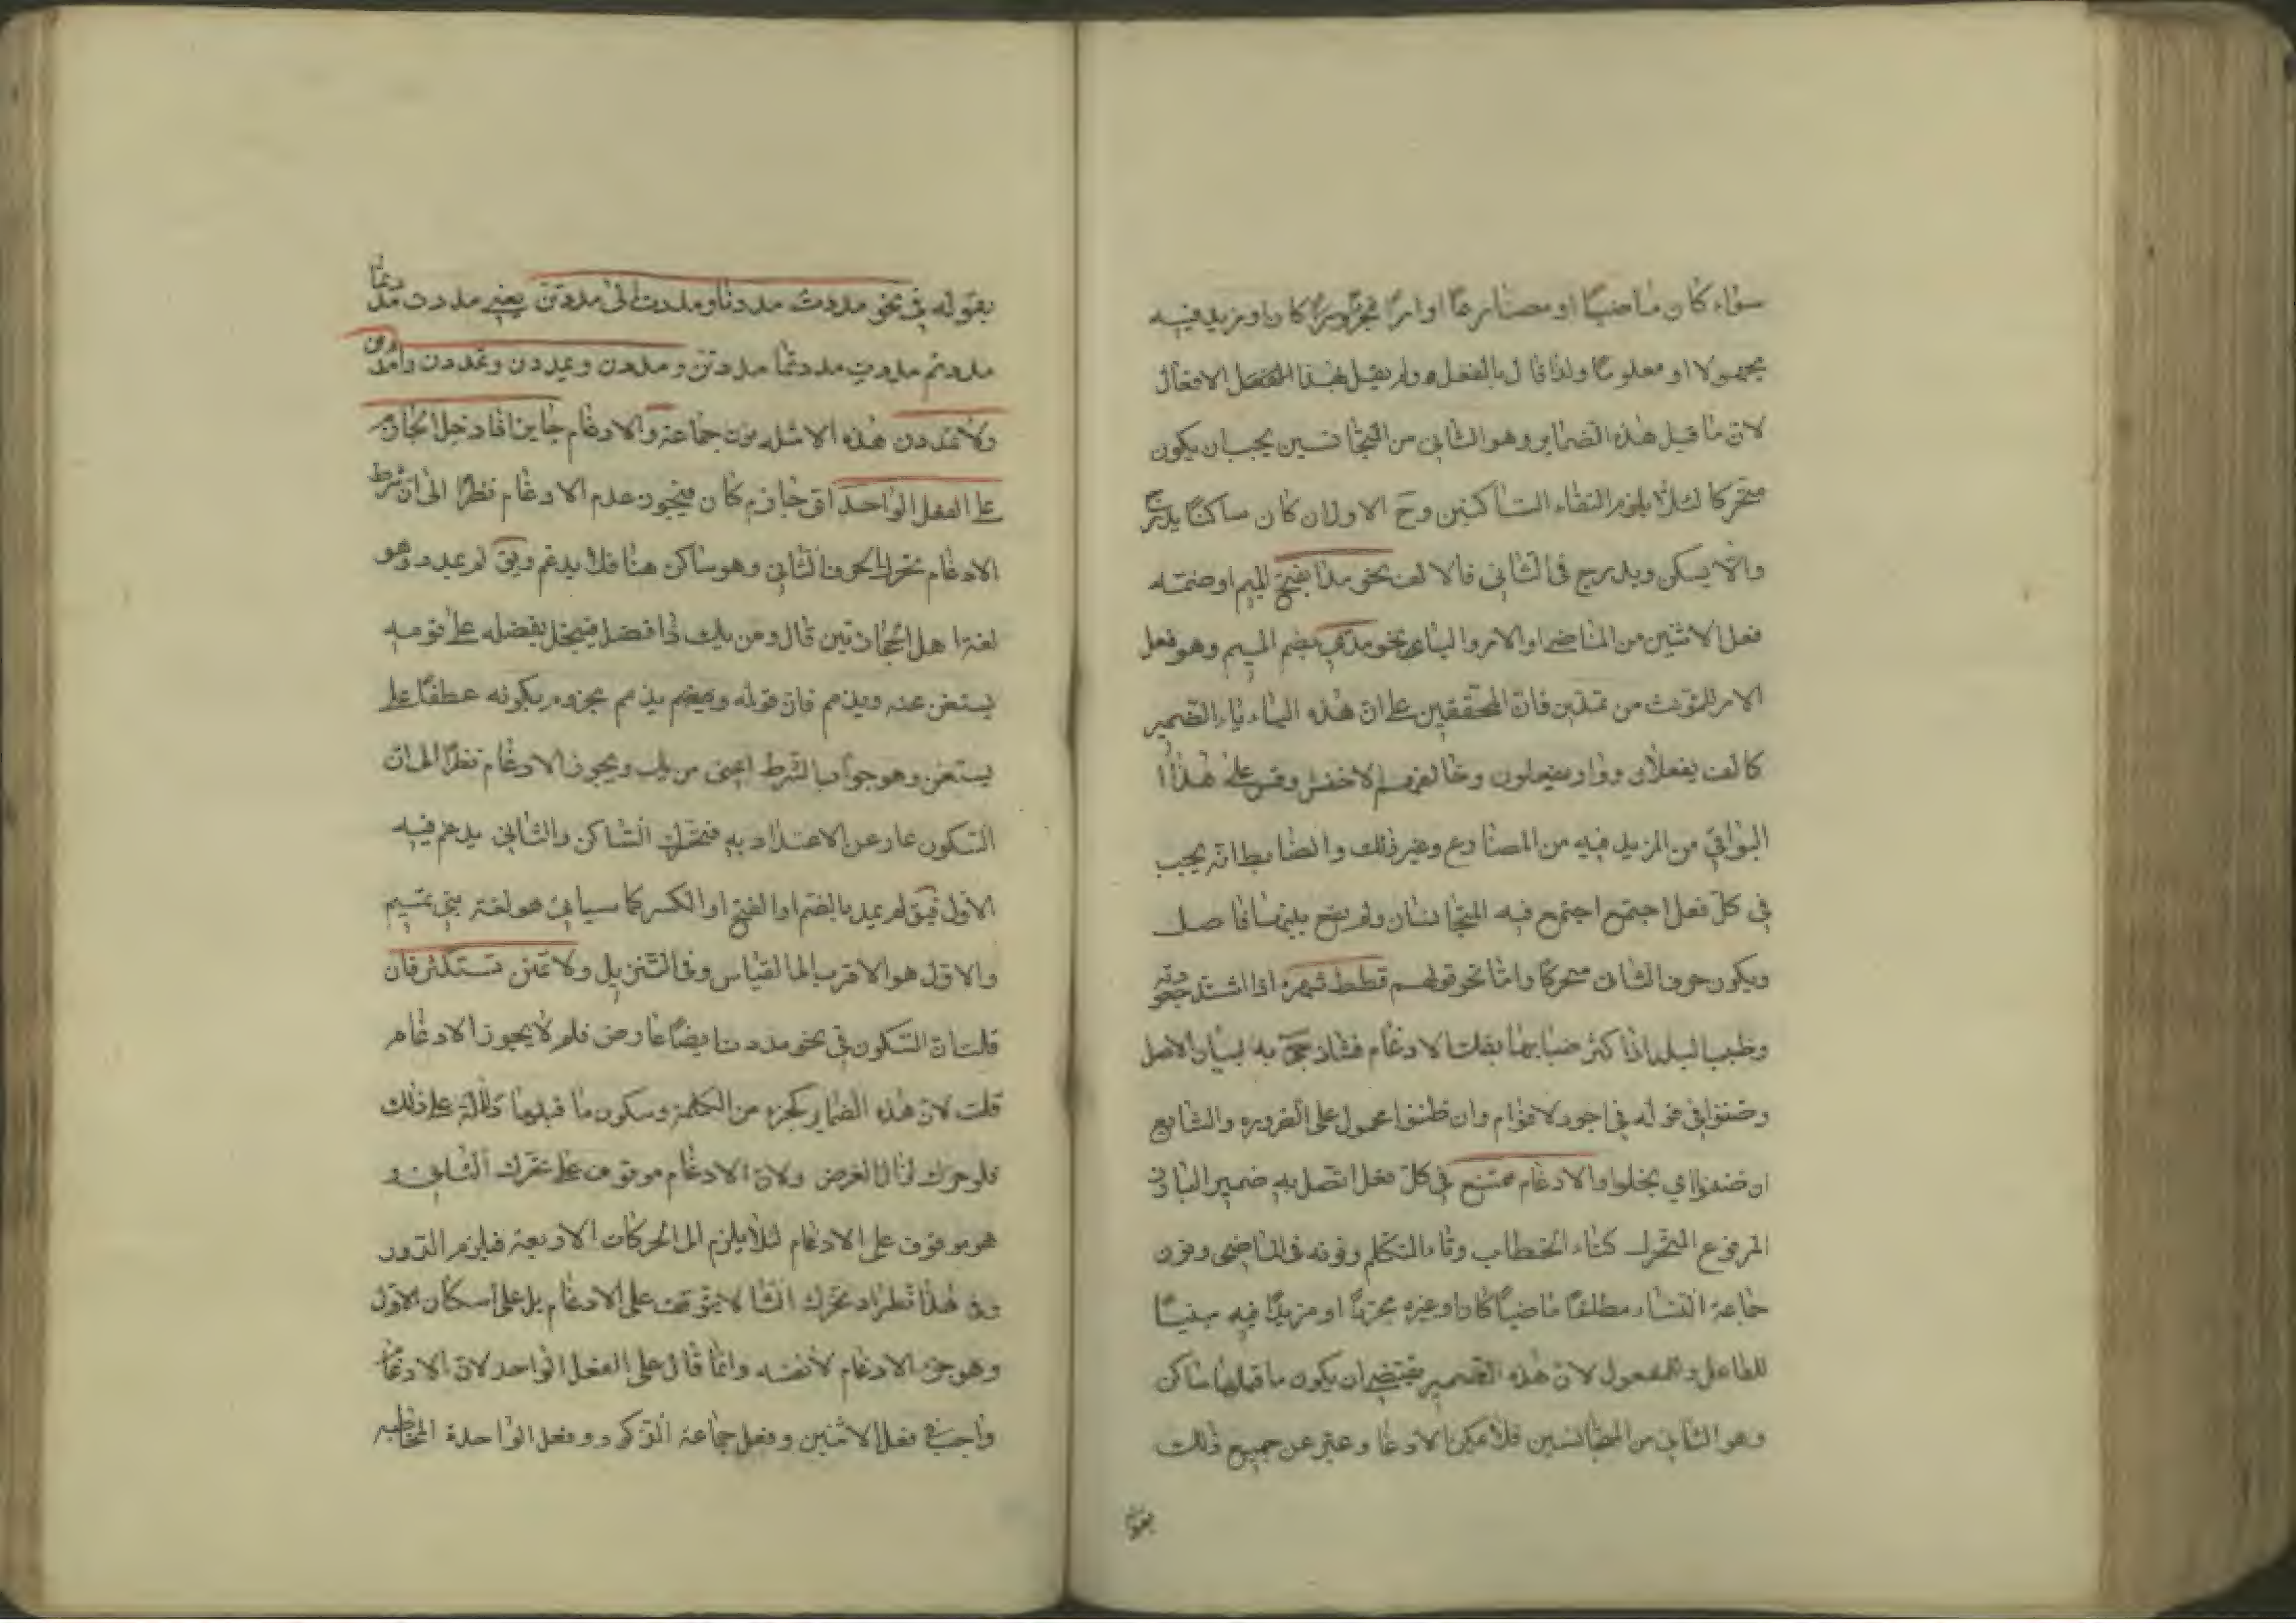 سواء كان ماضيًا او مضارعًا او امرًا مجردًا كان او مزيد فيه
مجهولا او معلومًا ولذا قال بالفعل ولم يقل بهذا الافعال
لان ما قبل هذه الضماير وهو الثانى من المتجانسين يجب ان يكون
متحركا لئلا يلزم التقاء الساكنين وح الاول ان كان ساكنًا يدرج
والا يسكن ويدرج فى الثانى فالالف نحو مدا بفتح الميم او ضمته
فعل الاثنين من الماضى او الامر والياء نحو مدى بضم الميم وهو فعل
الامر للمؤنث من تمدين فان المحققين على ان هذه الياء ياء الضمير
كالف يفعلان وواو يفعلون وخالفهم الاخفش وقس على هذا
البواقى من المزيد فيه من المضارع وغير ذلك والضابط انه يجب
فى كل فعل اجتمع اجتمع فيه المتجانسان ولم يقع بينهما فاصل
ويكون حرف الثانى متحركا واما نحو قولهم قطط شعره اذا اشتد جعودته
وضبب البلد اذا كثر ضبابها بفك الادغام فشاذ جئ به لبيان الاصل
وضننوا فى قوله فى اجود لاقوام وان ضننوا محمول على الضرورة والشايع
ان ضنوا اى بخلوا والادغام ممتنع فى كل فعل اتصل به ضمير البارز
المرفوع المتحرك كتاء الخطاب وتاء المتكلم ونونه فى الماضى ونون
جماعة النساء مطلقًا ماضيًا كان او غيره مجردًا او مزيدًا فيه مبنيًا
للفاعل وللمفعول لان هذه الضمير يقتضى ان يكون ما قبلها ساكن
وهو الثانى من المتجانسين فلا يمكن الادغا وعبر عن جميع ذلك
بقو
بقوله فى نحو مددت مددنا ومددت الى مددتن يعنى مددت مددتما
مددتم مددت مددتما مددتن ومددن ويمددن وتمددن وامددن
ولا تمددن هذه الامثله نون جماعة والادغام جايز اذا دخل الجازم
على الفعل الواحد اى جازم كان فيجوز عدم الادغام نظرًا الى ان شرط
الادغام تحرك الحرف الثانى وهو ساكن هنا فلا يدغم ويق لم يمدد وهو
لغة اهل الحجازيين قال ومن يك ذا فضل فيبخل بفضله على قومه
يستغن عنه ويذمم فان قوله ويذمم مجزوم بكونه عطفًا على
يستغن وهو جواب الشرط اعنى من يك ويجوز الادغام نظرًا الى ان
السكون عار عن الاعتداد به فتحرك الساكن والثانى يدغم فيه
الاول فيق لم يمد بالضم او الفتح او الكسر كما سياتى هو لغة بنى تميم
والاول هو الاقرب الى القياس وفى التنزيل ولا تمنن تستكثر فان
قلت ان السكون فى نحو مددت ايضًا عارض فلم لا يجوز الادغام
قلت لان هذه الضماير كجزء من الكلمة وسكون ما قبلها دلالة على ذلك
فلو حرك لزال الغرض ولان الادغام موقوف على تحرك الثانى و
هو موقوف على الادغام لئلا يلزم الحركات الاربعة فيلزم الدور
وفى هذا نظر اذ تحرك الثا لا يتوقف على الادغام بل على اسكان الاول
وهو جزء الادغام لا نفسه وانما قال على الفعل الواحد لان الادغام
واجب فى فعل الاثنين وفعل جماعة الذكور وفعل الواحدة المخاطبه